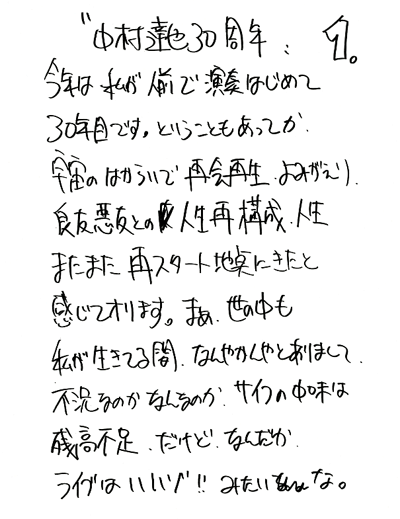 "中村達也30周年、 1.
今年は私が人前で演奏はじめて
30年目です。ということもあってか.
宇宙のはからいで再会再生.よみがえり.
良友悪友との人生再構成.人生
またまた再スタート地点にきたと
感じております。まぁ.世の中も
私が生きてる間.なんやかんやとありまして.
不況なのかなんなのか.サイフの中味は
残高不足.だけど.なんだか.
ライヴはいいゾ!!みたいな。